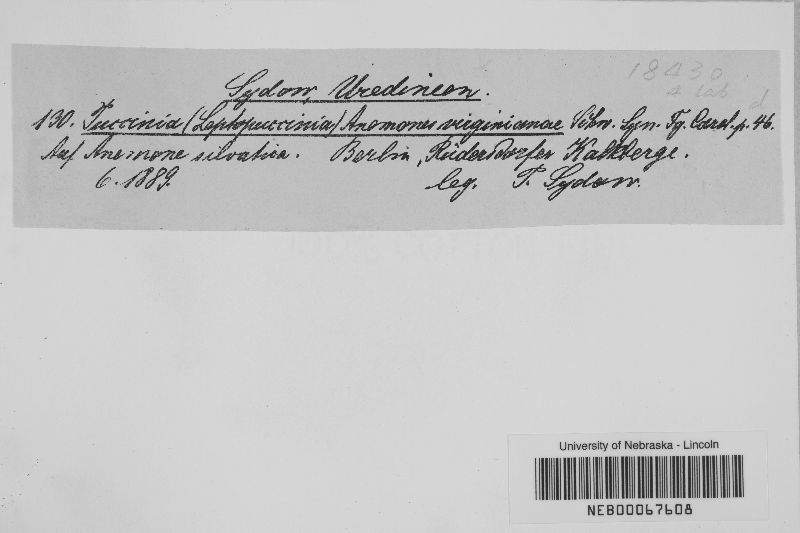 18430
4 lab d
Sydow, Uredineen.
130. Puccinia (Leptopuccinia) Anemones virginianae Schw. Syn. Fg. Carol. p. 46.
Auf Anemone silvatica. Berlin, Rüdersdorfer Kalkberge.
6. 1889. leg. P. Sydow.
University of Nebraska - Lincoln
NEB00067608